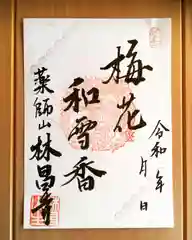 令和 年 月 日
梅花
和雪香
薬師山林昌寺